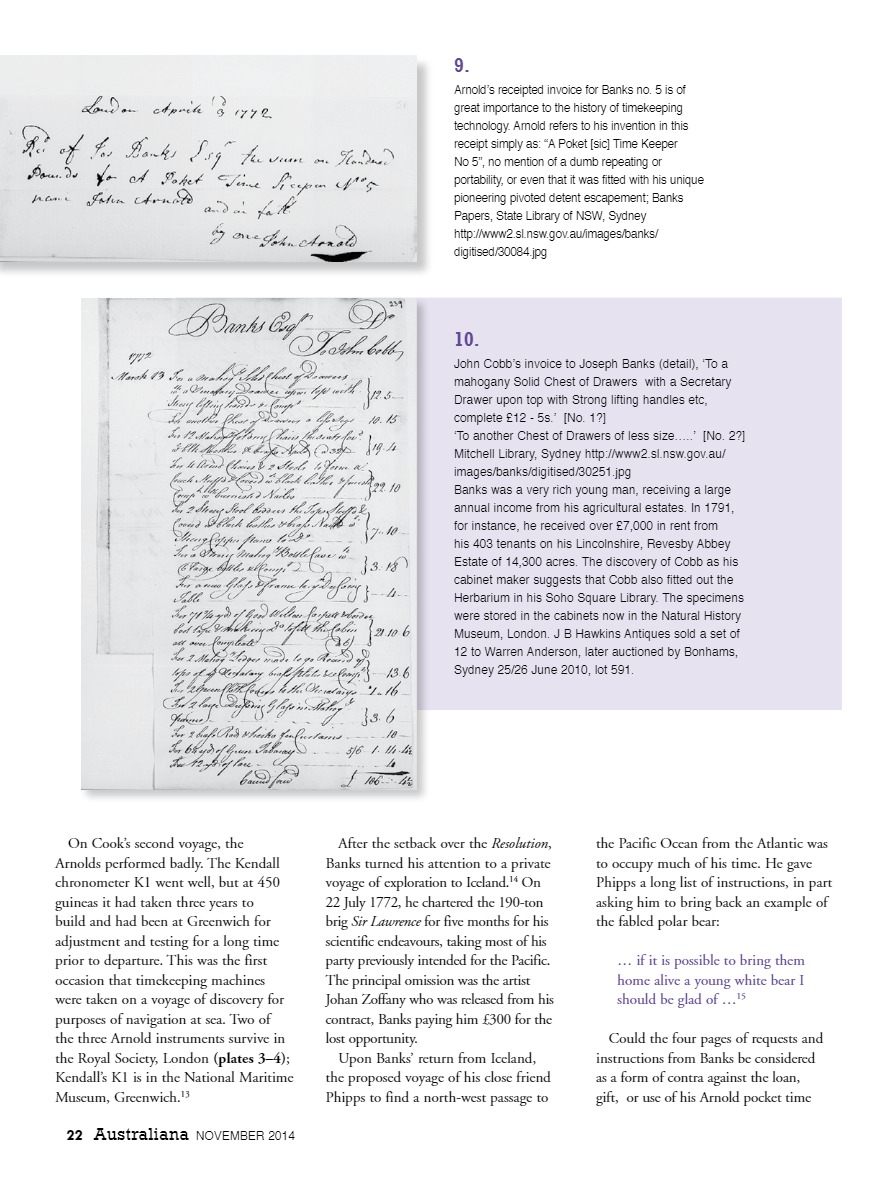 London April 3d 1772
of Jos Banks Esqr the sum on Hundred
Pounds for A Poket Time Keeper No 5
name John Arnold
and in full
by me John Arnold
9.
Arnold’s receipted invoice for Banks no. 5 is of
great importance to the history of timekeeping
technology. Arnold refers to his invention in this
receipt simply as: “A Poket [sic] Time Keeper
No 5”, no mention of a dumb repeating or
portability, or even that it was fitted with his unique
pioneering pivoted detent escapement; Banks
Papers, State Library of NSW, Sydney
http://www2.sl.nsw.gov.au/images/banks/
digitised/30084.jpg
239
Banks Esqr Dr
To John Cobb
1772
March 13 For a Mahogy Solid Chest of Drawers
wth a Secretary Drawer upon top with
Strong lifting handles & Compt 12. 5
For another Chest of Drawers a less Size 10. 15
19. 4
For 4 Armd Chairs & 2 Stools to form a
Couch Stuff'd & Coverd in black leather &
22. 10
7. 10
For a Strong Mahogy Bottle Case
3. 18
For a new Glass & frame to
Table 4
21. 10. 6
all over Compleat
13. 6
1. 16
For 2 large Dressing Glass in Mahogy
frames 3. 6
For 2 brass Rods & hooks for Curtains 10
For 6 yds of Green Tabaray 5/6 1. 14. 4½
For 12 yds of lace 4
Carried forwd £ 106 4½
10.
John Cobb’s invoice to Joseph Banks (detail), ‘To a
mahogany Solid Chest of Drawers with a Secretary
Drawer upon top with Strong lifting handles etc,
complete £12 - 5s.’ [No. 1?]
‘To another Chest of Drawers of less size…..’ [No. 2?]
Mitchell Library, Sydney http://www2.sl.nsw.gov.au/
images/banks/digitised/30251.jpg
Banks was a very rich young man, receiving a large
annual income from his agricultural estates. In 1791,
for instance, he received over £7,000 in rent from
his 403 tenants on his Lincolnshire, Revesby Abbey
Estate of 14,300 acres. The discovery of Cobb as his
cabinet maker suggests that Cobb also fitted out the
Herbarium in his Soho Square Library. The specimens
were stored in the cabinets now in the Natural History
Museum, London. J B Hawkins Antiques sold a set of
12 to Warren Anderson, later auctioned by Bonhams,
Sydney 25/26 June 2010, lot 591.
On Cook’s second voyage, the
Arnolds performed badly. The Kendall
chronometer K1 went well, but at 450
guineas it had taken three years to
build and had been at Greenwich for
adjustment and testing for a long time
prior to departure. This was the first
occasion that timekeeping machines
were taken on a voyage of discovery for
purposes of navigation at sea. Two of
the three Arnold instruments survive in
the Royal Society, London (plates 3–4);
Kendall’s K1 is in the National Maritime
Museum, Greenwich.13
After the setback over the Resolution,
Banks turned his attention to a private
voyage of exploration to Iceland.14 On
22 July 1772, he chartered the 190-ton
brig Sir Lawrence for five months for his
scientific endeavours, taking most of his
party previously intended for the Pacific.
The principal omission was the artist
Johan Zoffany who was released from his
contract, Banks paying him £300 for the
lost opportunity.
Upon Banks’ return from Iceland,
the proposed voyage of his close friend
Phipps to find a north-west passage to
the Pacific Ocean from the Atlantic was
to occupy much of his time. He gave
Phipps a long list of instructions, in part
asking him to bring back an example of
the fabled polar bear:
… if it is possible to bring them
home alive a young white bear I
should be glad of …15
Could the four pages of requests and
instructions from Banks be considered
as a form of contra against the loan,
gift, or use of his Arnold pocket time
22 Australiana NOVEMBER 2014